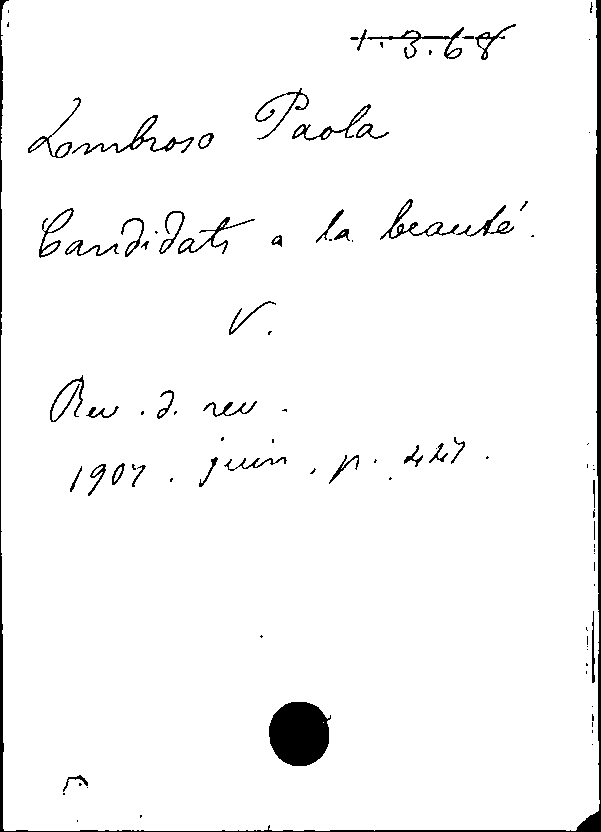 1.3.68
Lombroso Paola
Candidats a la beauté.
V.
Rev. d. rev.
1907. juin, p. 427.